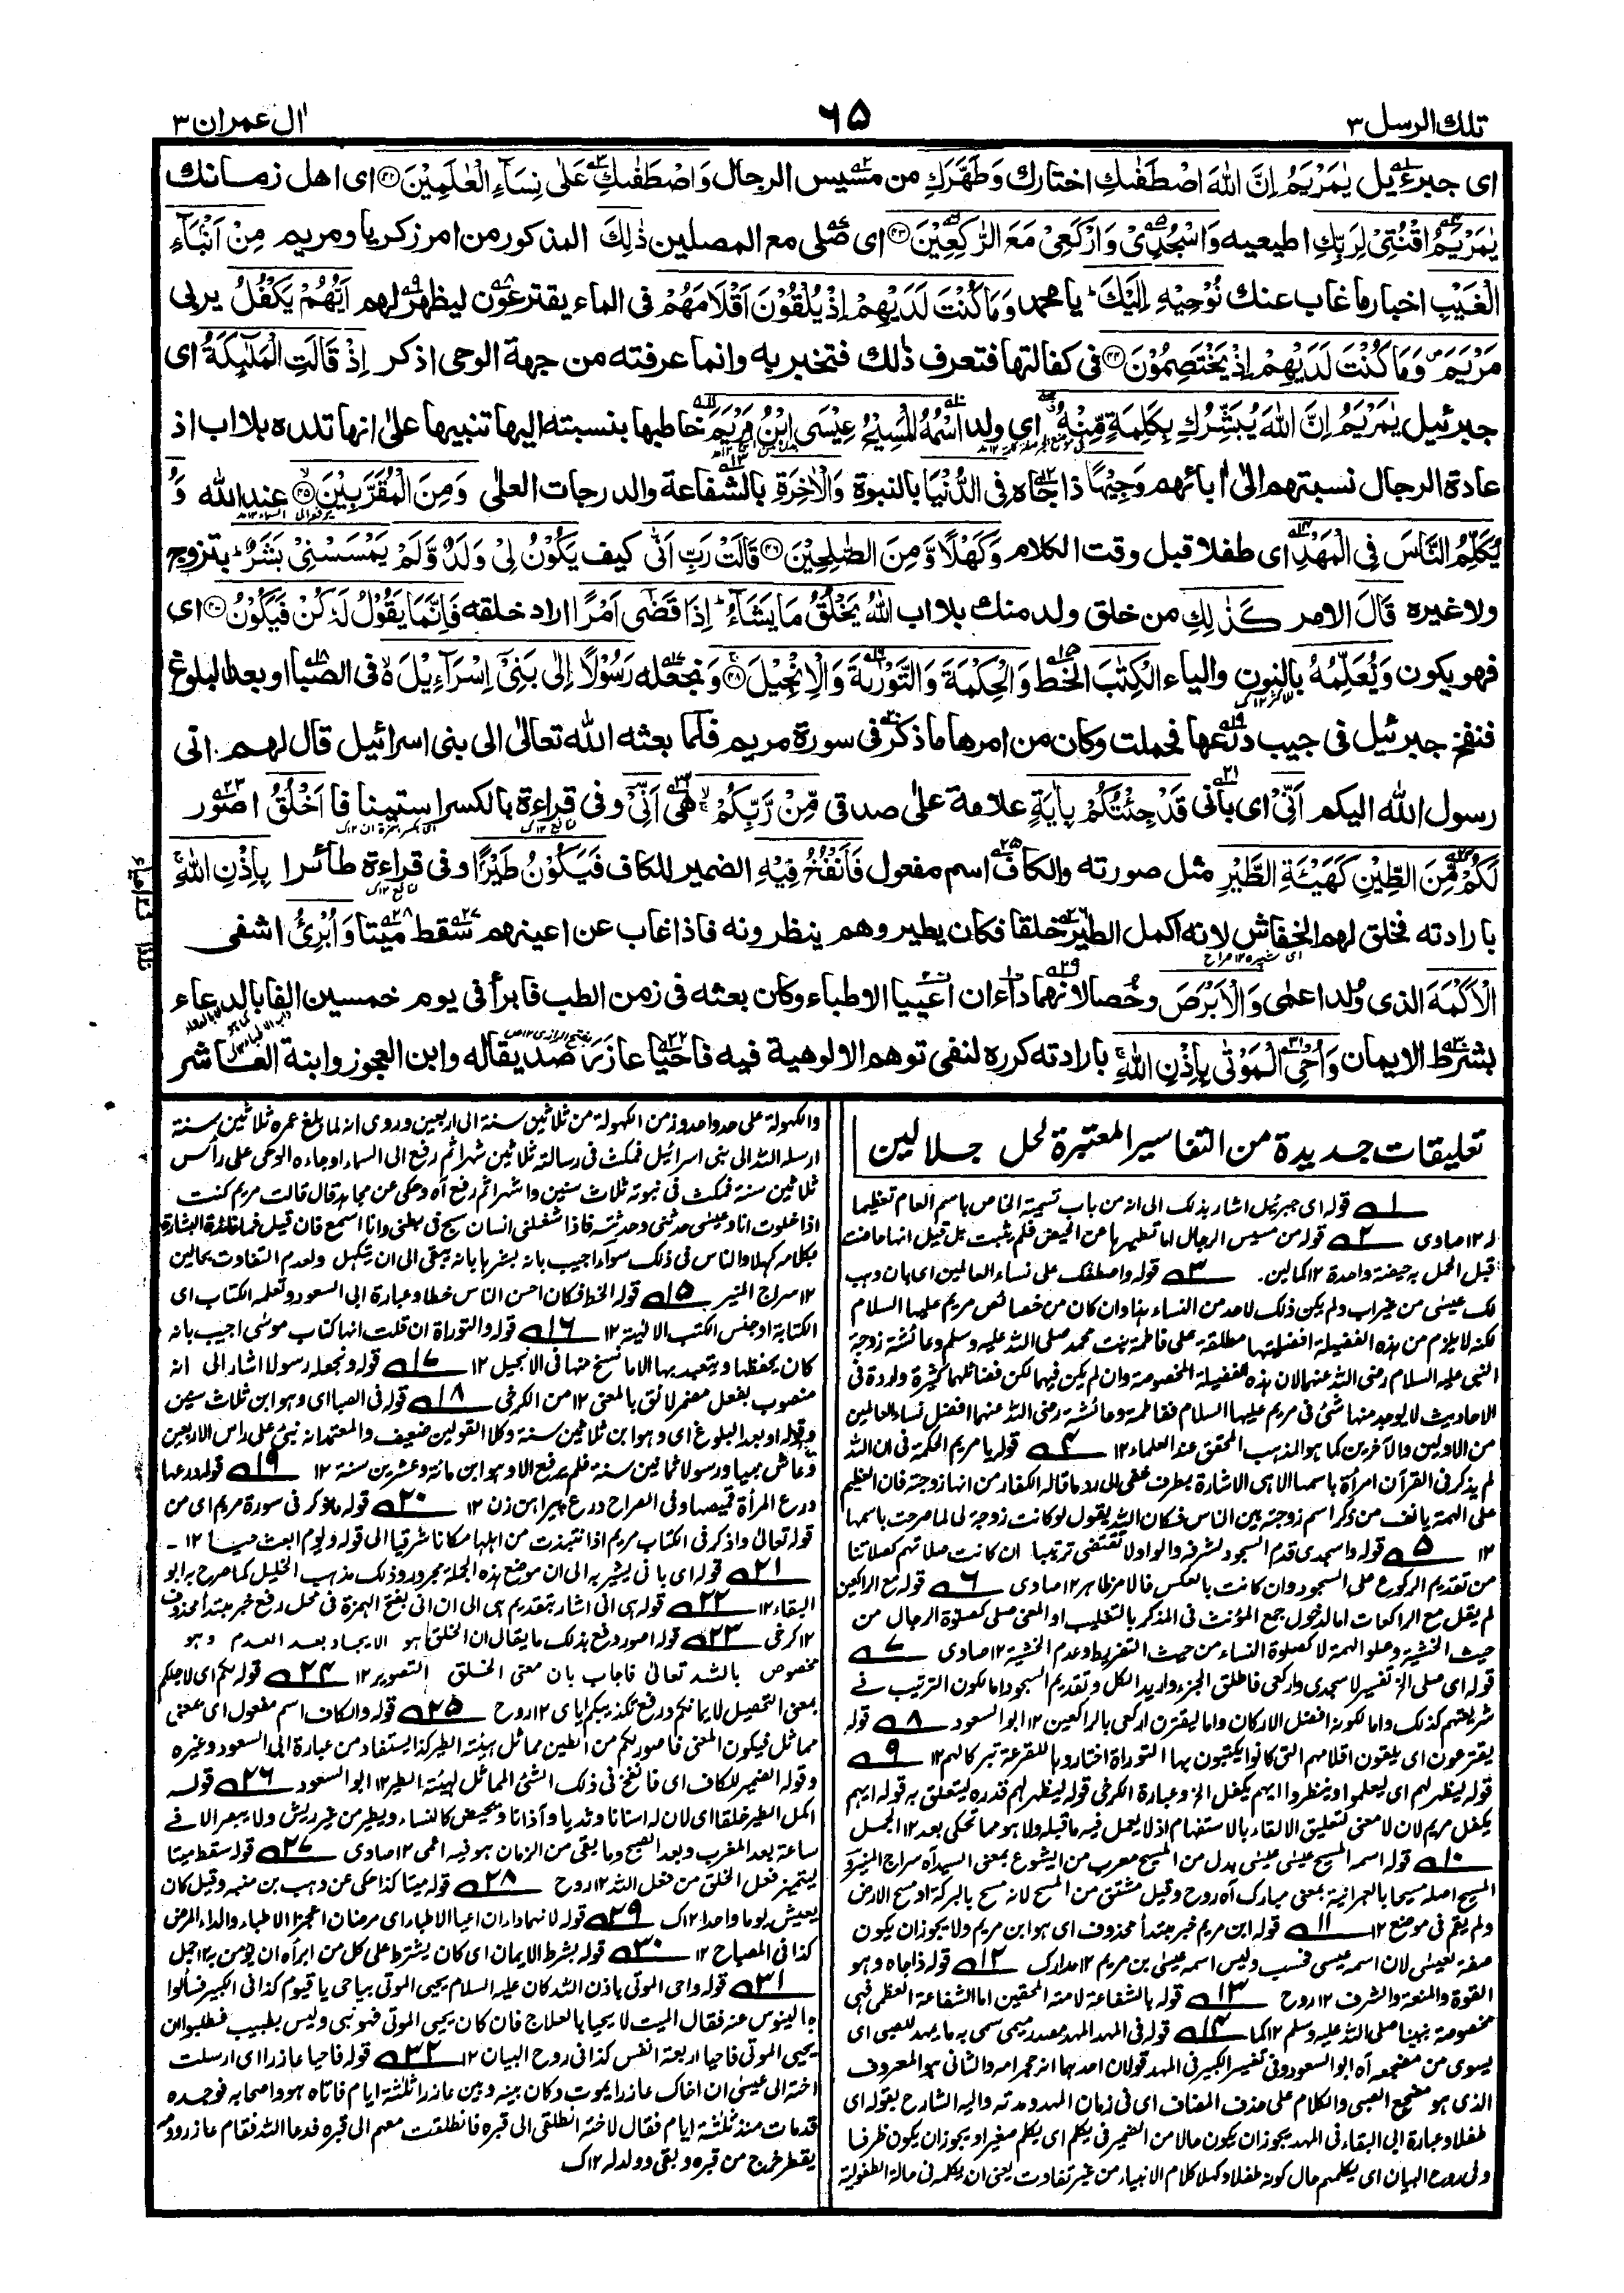 تلك الرسل ٣
٦٥
اٰل عمران ٣
اى جبرءيل يٰمَرْيَمُ اِنَّ اللّٰهَ اصْطَفٰىكِ اختارك وَطَهَّرَكِ من مسيس الرجال وَاصْطَفٰىكِ عَلٰى نِسَآءِ الْعٰلَمِيْنَ ۝٤٢ اى اهل زمانك
يٰمَرْيَمُ اقْنُتِيْ لِرَبِّكِ اطيعيه وَاسْجُدِيْ وَارْكَعِيْ مَعَ الرّٰكِعِيْنَ ۝٤٣ اى صلى مع المصلين ذٰلِكَ المذكور من امر زكريا ومريم مِنْ اَنْۢبَآءِ
الْغَيْبِ اخبار ما غاب عنك نُوْحِيْهِ اِلَيْكَ ؕ يا محمد وَمَا كُنْتَ لَدَيْهِمْ اِذْ يُلْقُوْنَ اَقْلَامَهُمْ فى الماء يقترعون ليظهر لهم اَيُّهُمْ يَكْفُلُ يربى
مَرْيَمَ ۪ وَمَا كُنْتَ لَدَيْهِمْ اِذْ يَخْتَصِمُوْنَ ۝٤٤ فى كفالتها فتعرف ذٰلك فتخبر به وانما عرفته من جهة الوحى اذكر اِذْ قَالَتِ الْمَلٰٓئِكَةُ اى
جبرئيل يٰمَرْيَمُ اِنَّ اللّٰهَ يُبَشِّرُكِ بِكَلِمَةٍ مِّنْهُ اى ولد اسْمُهُ الْمَسِيْحُ عِيْسَى ابْنُ مَرْيَمَ خاطبها بنسبته اليها تنبيها علىٰ انها تلده بلا اب اذ
عادة الرجال نسبتهم الىٰ اٰبائهم وَجِيْهًا ذا جاه فِى الدُّنْيَا بالنبوة وَالْاٰخِرَةِ بالشفاعة والدرجات العلى وَمِنَ الْمُقَرَّبِيْنَ ۝٤٥ عند الله وَ
يُكَلِّمُ النَّاسَ فِى الْمَهْدِ اى طفلا قبل وقت الكلام وَكَهْلًا وَّمِنَ الصّٰلِحِيْنَ ۝٤٦ قَالَتْ رَبِّ اَنّٰى كيف يَكُوْنُ لِيْ وَلَدٌ وَّلَمْ يَمْسَسْنِيْ بَشَرٌ ؕ بتزوج
ولا غيره قَالَ الامر كَذٰلِكِ من خلق ولد منك بلا اب اللّٰهُ يَخْلُقُ مَا يَشَآءُ ؕ اِذَا قَضٰٓى اَمْرًا اراد خلقه فَاِنَّمَا يَقُوْلُ لَهٗ كُنْ فَيَكُوْنُ ۝٤٧ اى
فهو يكون وَيُعَلِّمُهُ بالنون والياء الْكِتٰبَ الخط وَالْحِكْمَةَ وَالتَّوْرٰىةَ وَالْاِنْجِيْلَ ۝٤٨ وَ نجعله رَسُوْلًا اِلٰى بَنِيْٓ اِسْرَآءِيْلَ فى الصبا او بعد البلوغ
فنفخ جبرئيل فى جيب درعها فحملت وكان من امرها ما ذكر فى سورة مريم فلما بعثه الله تعالىٰ الى بنى اسرائيل قال لهم انى
رسول الله اليكم اَنِّيْ اى بانى قَدْ جِئْتُكُمْ بِاٰيَةٍ علامة علىٰ صدقى مِّنْ رَّبِّكُمْ هى اَنِّيْٓ وفى قراءة بالكسر استينافا اَخْلُقُ اصور
لَكُمْ مِّنَ الطِّيْنِ كَهَيْـَٔةِ الطَّيْرِ مثل صورته والكاف اسم مفعول فَاَنْفُخُ فِيْهِ الضمير للكاف فَيَكُوْنُ طَيْرًا وفى قراءة طائرا بِاِذْنِ اللّٰهِ
بارادته فخلق لهم الخفاش لانه اكمل الطير خلقا فكان يطير وهم ينظرونه فاذا غاب عن اعينهم سقط ميتا وَاُبْرِئُ اشفى
الْاَكْمَهَ الذى ولد اعمى وَالْاَبْرَصَ وخصا لانهما داءان اعييا الاطباء وكان بعثه فى زمن الطب فابرأ فى يوم خمسين الفا بالدعاء
بشرط الايمان وَاُحْيِ الْمَوْتٰى بِاِذْنِ اللّٰهِ بارادته كرره لنفى توهم الالوهية فيه فاحيا عازر صديقا له وابن العجوز وابنة العاشر
تعليقات جديدة من التفاسير المعتبرة لحل جلالين
١ قوله اى جبرئيل اشار بذلك الى انه من باب تسمية الخاص باسم العام تعظيما
له ١٢ صاوى ٢ قوله من مسيس الرجال اما تطهيرها عن الحيض فلم يثبت بل قيل انها حاضت
قبل الحمل به حيضة واحدة ١٢ كمالين. ٣ قوله واصطفٰك على نساء العالمين اى بان وهب
لك عيسىٰ من غير اب ولم يكن ذلك لاحد من النساء هذا وان كان من خصائص مريم عليها السلام
لكنه لا يلزم من هذه الفضيلة افضليتها مطلقة على فاطمة بنت محمد صلى الله عليه وسلم وعائشة زوجة
النبى عليه السلام رضى الله عنهما لان هذه الفضيلة المخصوصة وان لم يكن فيهما لكن فضائلهما كثيرة واردة فى
الاحاديث لا يوجد منها شئ فى مريم عليها السلام ففاطمة وعائشة رضى الله عنهما افضل نساء العالمين
من الاولين والآخرين كما هو المذهب المحقق عند العلماء ١٢ ٤ قوله يا مريم الحكمة فى ان الله
لم يذكر فى القرآن امرأة باسمها الا هى الاشارة بطرف خفى الى رد ما قاله الكفار من انها زوجته فان العظيم
على الهمة يانف من ذكر اسم زوجته بين الناس فكان الله يقول لو كانت زوجة لى لما صرحت باسمها
١٢ ٥ قوله واسجدى قدم السجود لشرفه والواو لا تقتضى ترتيبا ان كانت صلاتهم كصلاتنا
من تقديم الركوع على السجود وان كانت بالعكس فالامر ظاهر ١٢ صاوى ٦ قوله مع الراكعين
لم يقل مع الراكعات اما لدخول جمع المؤنث فى المذكر بالتغليب او المعنى صلى كصلوة الرجال من
حيث الخشية وعلو الهمة لا كصلوة النساء من حيث التفريط وعدم الخشية ١٢ صاوى ٧
قوله اى صلى الخ تفسير لاسجدى واركعى فاطلق الجزء واريد الكل وتقديم السجود اما لكون الترتيب فى
شريعتهم كذلك واما لكونه افضل الاركان واما ليقترن اركعى بالراكعين ١٢ ابو السعود ٨ قوله
يقترعون اى يلقون اقلامهم التى كانوا يكتبون بها التوراة اختاروها للقرعة تبركا لهم ١٢ ٩
قوله ليظهر لهم اى ليعلموا او ينظروا ايهم يكفل الخ وعبارة الكرخى قوله ليظهر لهم قدره ليتعلق به قوله ايهم
يكفل مريم لان لا معنى لتعليق الالقاء بالاستفهام اذ لا يعمل فيه ما قبله ولا هو مما تحكى بعده ١٢ الجمل
١٠ قوله اسمه المسيح عيسىٰ عيسىٰ بدل من المسيح معرب من ايشوع بمعنى السيد آه سراج المنير و
المسيح اصله مسيحا بالعبرانية بمعنى مبارك آه روح وقيل مشتق من المسح لانه مسح بالبركة او مسح الارض
ولم يقم فى موضع ١٢ ١١ قوله ابن مريم خبر مبتدأ محذوف اى هو ابن مريم ولا يجوز ان يكون
صفة لعيسىٰ لان اسمه عيسى فحسب وليس اسمه عيسىٰ بن مريم ١٢ مدارك ١٢ قوله ذا جاه وهو
القوة والمنعة والشرف ١٢ روح ١٣ قوله بالشفاعة لامته المحقين اما الشفاعة العظمى فهى
مخصوصة بنبينا صلى الله عليه وسلم ١٢ ١٤ قوله فى المهد المهد مصدر ميمى سمى به ما يمهد للصبى اى
يسوى من مضجعه آه ابو السعود وفى تفسير الكبير فى المهد قولان احدهما انه حجر امه والثانى هو المعروف
الذى هو مضجع الصبى والكلام على حذف المضاف اى فى زمان المهد ومدته واليه الشارح بقوله اى
طفلا وعبارة ابى البقاء فى المهد يجوز ان يكون حالا من الضمير فى يكلم اى يكلم صغيرا ويجوز ان يكون ظرفا
وفى روح البيان اى يكلمهم حال كونه طفلا وكهلا كلام الانبياء من غير تفاوت يعنى ان يكلمه فى حالة الطفولية
والكهولة على حد واحد وزمن الكهولة من ثلاثين سنة الى اربعين وروى انه لما بلغ عمره ثلاثين سنة
ارسله الله الى بنى اسرائيل فمكث فى رسالته ثلاثين شهرا ثم رفع الى السماء او جاءه الوحى على رأس
ثلاثين سنة فمكث فى نبوته ثلاث سنين واشهرا ثم رفع آه وحكى عن مجاهد قال قالت مريم كنت
اذا خلوت انا وعيسىٰ حدثنى وحدثته فاذا شغلنى انسان سبح فى بطنى وانا اسمع فان قيل فما فائدة البشارة
بكلامه كهلا والناس فى ذلك سواء اجيب بانه بشرها بانه يبقى الى ان يتكهل ولعدم التفاوت بحالين
١٢ سراج المنير ١٥ قوله الخط فكان احسن الناس خطا وعبارة ابى السعود وتعلمه الكتاب اى
الكتابة او جنس الكتب الالهية ١٢ ١٦ قوله والتوراة ان قلت انها كتاب موسىٰ اجيب بانه
كان يحفظها ويتعبد بها الا ما نسخ منها فى الانجيل ١٢ ١٧ قوله ونجعله رسولا اشار الى انه
منصوب بفعل مضمر لائق بالمعنى ١٢ من الكرخى ١٨ قوله فى الصبا اى وهو ابن ثلاث سنين
وقوله او بعد البلوغ اى وهو ابن ثلاثين سنة وكلا القولين ضعيف والمعتمد انه نبئ على راس الاربعين
وعاش نبيا ورسولا ثمانين سنة فلم يرفع الا وهو ابن مائة وعشرين سنة ١٢ ١٩ قوله درعها
درع المرأة قميصها وفى الصراح درع پيراهن زن ١٢ ٢٠ قوله ما ذكر فى سورة مريم اى من
قوله تعالىٰ واذكر فى الكتاب مريم اذ انتبذت من اهلها مكانا شرقيا الى قوله ويوم ابعث حيا ١٢
٢١ قوله اى بانى يشير به الى ان موضع هذه الجملة مجرور وذلك مذهب الخليل كما صرح به ابو
البقاء ١٢ ٢٢ قوله هى انى اشار بتقديم هى الى ان انى بفتح الهمزة فى محل رفع خبر مبتدأ محذوف
١٢ كرخى ٢٣ قوله اصور دفع بذلك ما يقال ان الخلق هو الايجاد بعد العدم وهو
مخصوص بالله تعالىٰ فاجاب بان معنى الخلق التصوير ١٢ ٢٤ قوله لكم اى لاجلكم
بمعنى التحصيل لايمانكم ودفع تكذيبكم اياى ١٢ روح ٢٥ قوله والكاف اسم مفعول اى بمعنى
مماثل فيكون المعنى فاصور لكم من الطين مماثل هيئة الطير كذا يستفاد من عبارة ابى السعود وغيره
وقوله الضمير للكاف اى فانفخ فى ذلك الشئ المماثل لهيئة الطير ١٢ ابو السعود ٢٦ قوله
اكمل الطير خلقا اى لان له اسنانا وثديا وآذانا ويحيض كالنساء ويطير من غير ريش ولا يبصر الا فى
ساعة بعد المغرب وبعد الصبح وما بقى من الزمان هو فيه اعمى ١٢ صاوى ٢٧ قوله سقط ميتا
ليتميز فعل الخلق من فعل الله ١٢ روح ٢٨ قوله ميتا كذا حكى عن وهب بن منبه وقيل كان
يعيش يوما واحدا ١٢ ك ٢٩ قوله لانهما داءان اعيا الاطباء اى مرضان اعجزا الاطباء والداء المرض
كذا فى المصباح ١٢ ٣٠ قوله بشرط الايمان اى كان يشترط على كل من ابرأه ان يؤمن به ١٢ جمل
٣١ قوله واحى الموتى باذن الله كان عليه السلام يحيى الموتى بيا حى يا قيوم كذا فى الكبير فسألوا
جالينوس عنه فقال الميت لا يحيا بالعلاج فان كان يحيى الموتى فهو نبى وليس بطبيب فطلبوا ان
يحيى الموتى فاحيا اربعة انفس كذا فى روح البيان ١٢ ٣٢ قوله فاحيا عازرا اى ارسلت
اخته الى عيسىٰ ان اخاك عازر يموت وكان بينه وبين عازر ثلثة ايام فاتاه هو واصحابه فوجده
قد مات منذ ثلثة ايام فقال لاخته انطلقى الى قبره فانطلقت معهم الى قبره فدعا الله فقام عازر وودكه
يقطر فخرج من قبره وبقى وولد له ١٢ ك